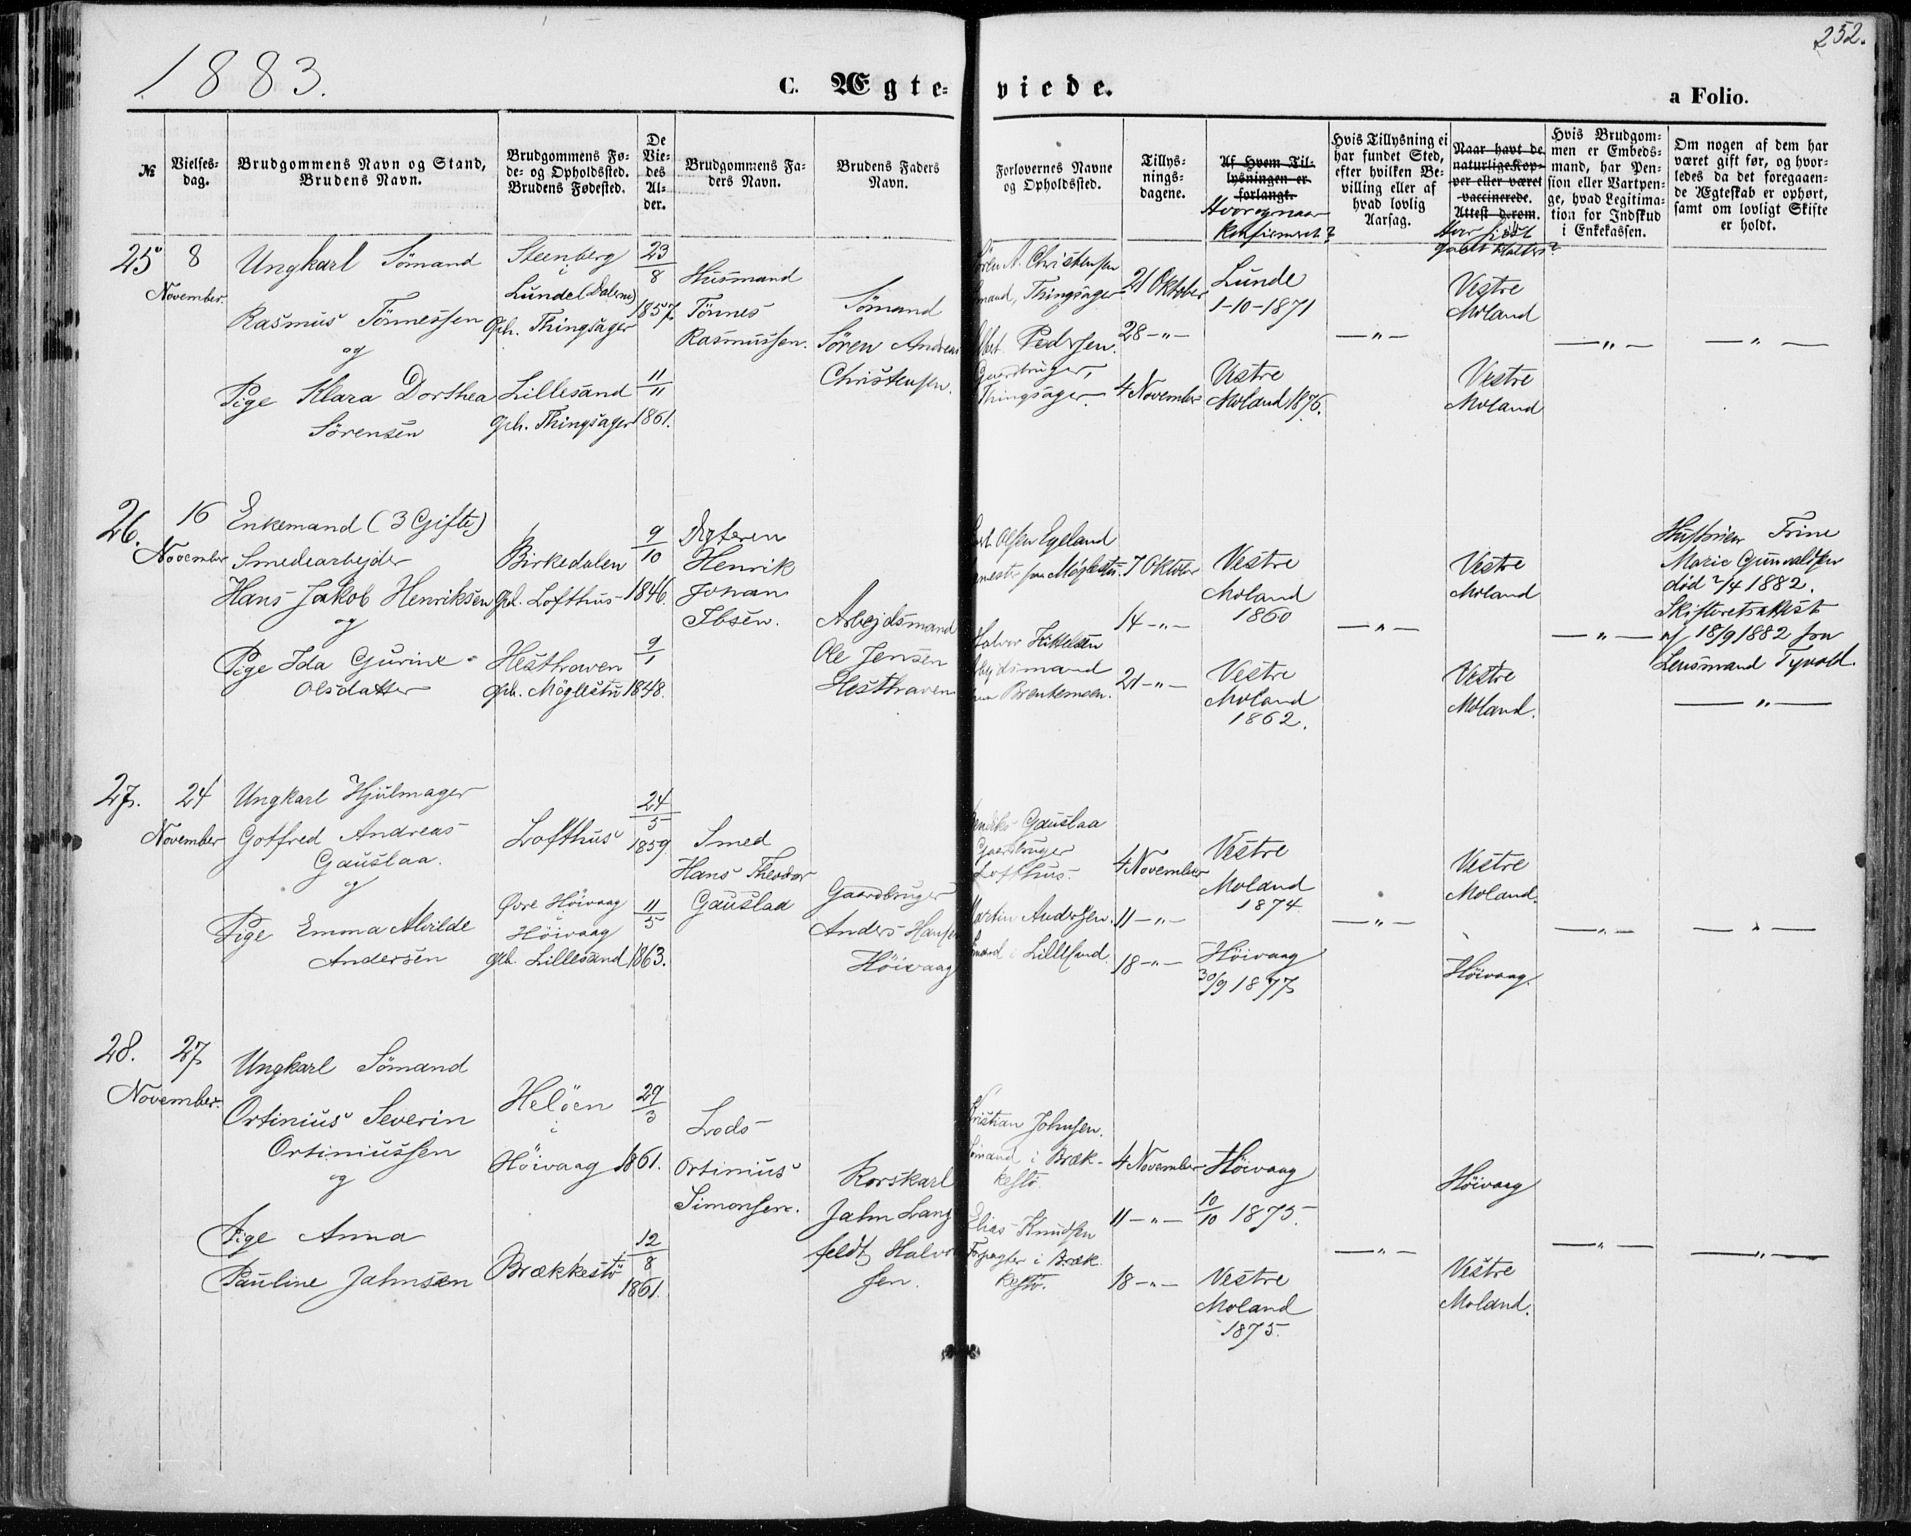 1883.
252.
C. Ægte-
viede.
a Folio.
№
Vielses-
dag.
Brudgommens Navn og Stand,
Brudens Navn.
Brudgommens Fø-
de- og Opholdssted.
Brudens Fødested.
De
Vie-
des
Al-
der.
Brudgommens Fa-
ders Navn.
Brudens Faders
Navn.
Forlovernes Navne
og Opholdssted.
Tillys-
nings-
dagene.
Af Hvem Til-
lysningen er
forlangt.
Hvor og naar
Konfirmeret?
Hvis Tillysning ei
har fundet Sted,
efter hvilken Be-
villing eller af
hvad lovlig
Aarsag.
Naar havt de
naturlige Kop-
per eller været
vaccinerede.
Attest derom.
Hvor sidst
Hvis Brudgom-
men er Embeds-
mand, har Pen-
sion eller Vartpen-
ge, hvad Legitima-
tion for Indskud
i Enkekassen.
Om nogen af dem har
været gift før, og hvor-
ledes da det foregaaen-
de Ægteskab er ophørt,
samt om lovligt Skifte
er holdt.
25
8
November.
Ungkarl Sömand
Rasmus Tönnessen
og
Pige Klara Dorthea
Sörensen
Steenberg
i
Lunde (Dalerne)
Oph. Thingsager
Lillesand
Oph. Thingsager
23
8
1857.
11
11
1861.
Husmand
Tönnes
Rasmussen.
Sömand
Sören Andreas
Christensen.
Sören A. Christensen
Sömand, Thingsager
Pedersen.
Gaardbruger,
Thingsager.
21 Oktober
28 — " —
4 November
Lunde
1-10-1871
Vestre
Moland 1876.
— " —
Vestre
Moland
Vestre
Moland
— " —
— " —
26.
16
November
Enkemand (3 Gifte)
Smedearbejder
Hans Jakob Henriksen
og
Pige Ida Gurine
Olsdatter
Birkedalen
Oph. Lofthus
Hesthraven
Oph. Möglestu
9
10
1846.
9
1
1848.
Henrik
Johan
Ibsen.
Arbejdsmand
Ole Jensen
Hesthraven
Olsen Egeland
7 Oktober
14 — " —
21 — " —
Halvor
Arbejdsmand
Vestre
Moland
1860
Vestre
Moland
1862.
— " —
Vestre
Moland
Vestre
Moland.
— " —
Hustruen Trine
Marie Gunvaldsen
död 2/4 1882.
Skifteretsattest
af 18/9 1882 fra
Lensmand Tyvold.
— " —
27.
24
November
Ungkarl Hjulmager
Gotfred Andreas
Gauslaa.
og
Pige Emma Alvilde
Andersen
Lofthus
Övre Höivaag
i
Höivaag
Oph. Lillesand
24
5
1859.
11
5
1863.
Smed
Hans Theodor
Gauslaa
Gaardbruger
Anders Hansen
Höivaag
Gauslaa
Gaardbruger
Lofthus.
Martin Andersen.
Sömand i Lillesand.
4 November
11 — " —
18 — " —
Vestre
Moland
1874.
Höivaag
30/9 1877
— " —
Vestre
Moland.
Höivaag.
— " —
— " —
28.
27
November.
Ungkarl Sömand
Ortinius Severin
Ortiniussen
og
Pige Anna
Pauline Jahnsen
Helöen
i
Höivaag
Brækkestö
29
3
1861.
12
8
1861.
Lods
Ortinius
Simonsen.
Rorskarl
Jahn Lang
feldt Halvor
sen.
Kristian Johnsen.
Sömand i Bræk-
kestö.
Elias Knudsen
Forpagter i Bræk-
kestö.
4 November
11 — " —
18 — " —
Höivaag
10
10 1875.
Vestre
Moland
1875.
— " —
Höivaag
Vestre
Moland.
— " —
— " —